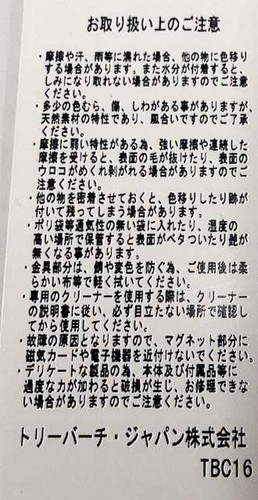 お取り扱い上のご注意
・摩擦や汗、雨等に濡れた場合、他の物に色移り
する場合があります。また水分が付着すると、
しみになり取れない場合がありますのでご注意
ください。
・多少の色むら、傷、しわがある事がありますが、
天然素材の特性であり、風合いですのでご了承
ください。
・摩擦に弱い特性がある為、強い摩擦や連続した
摩擦を受けると、表面の毛が抜けたり、表面の
ウロコがめくれ剥がれる場合がありますのでご
注意ください。
・他の物を密着させておくと、色移りしたり跡が
付いて残ってしまう場合があります。
・ポリ袋等通気性の無い袋に入れたり、湿度の
高い場所で保管すると表面がベタついたり艶が
無くなる事があります。
・金具部分は、錆や変色を防ぐ為、ご使用後は柔
らかい布等で軽く拭いてください。
・専用のクリーナーを使用する際は、クリーナー
の説明書に従い、必ず目立たない場所で確認し
てから使用してください。
・故障の原因となりますので、マグネット部分に
磁気カードや電子機器を近付けないでください。
・デリケートな製品の為、本体及び付属品等に
過度な力が加わると破損が生じ、お修理できな
い場合がありますのでご注意ください。
トリーバーチ・ジャパン株式会社
TBC16